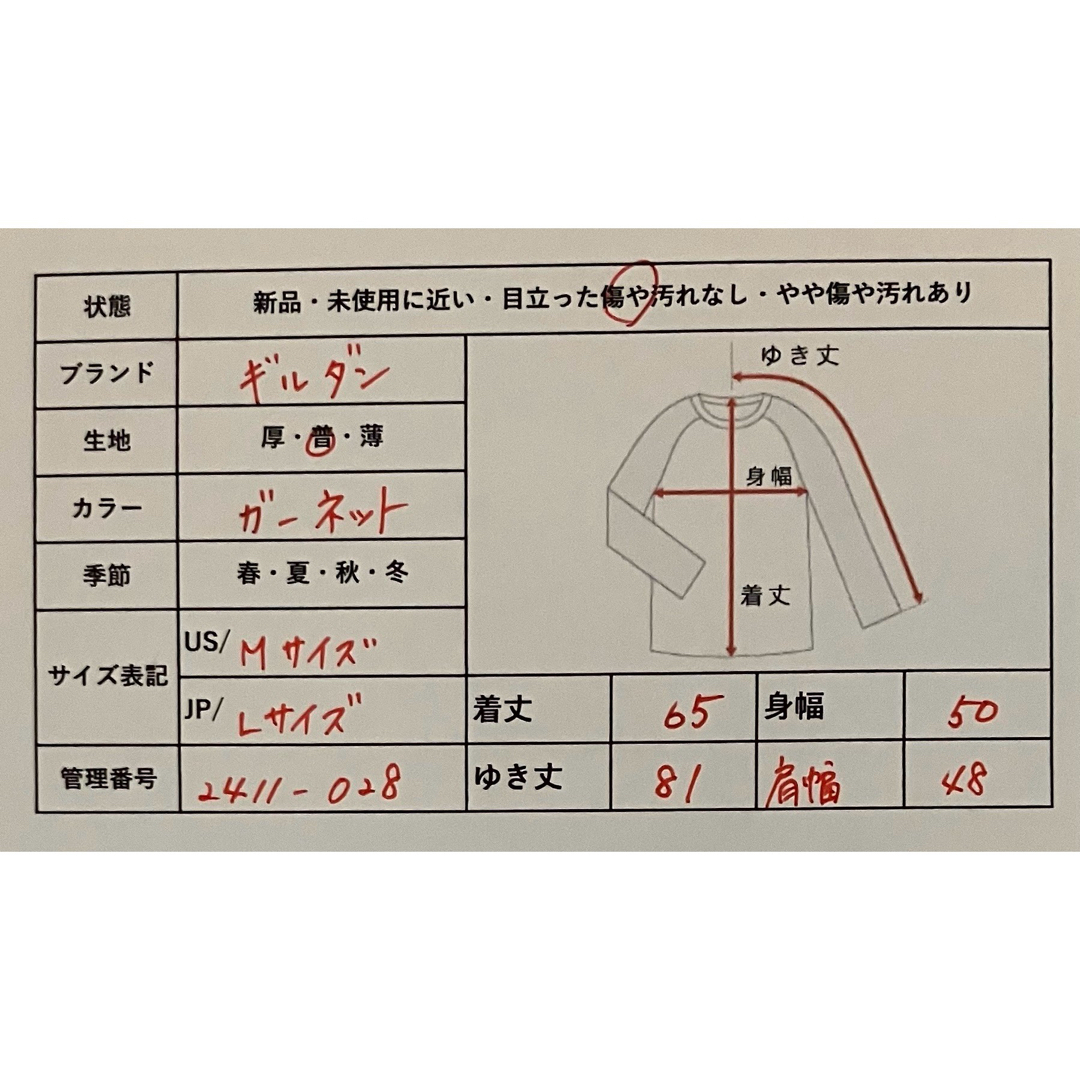 状態 新品・未使用に近い・目立った傷や汚れなし・やや傷や汚れあり
ブランド ギルダン
生地 厚・普・薄
カラー ガーネット
季節 春・夏・秋・冬
サイズ表記 US/ Mサイズ
JP/ Lサイズ
管理番号 2411-028
ゆき丈
身幅
着丈
着丈 65 身幅 50
ゆき丈 81 肩幅 48